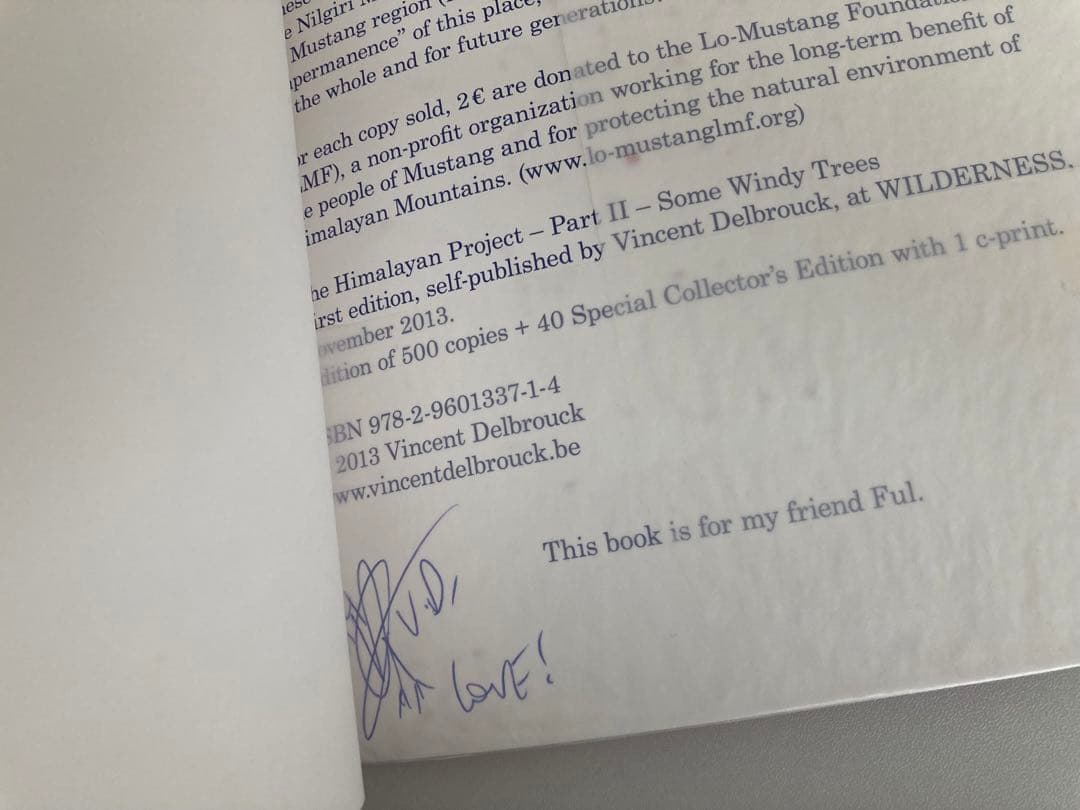 e Nilgiri
Mustang region
permanence” of this place,
the whole and for future generations.
r each copy sold, 2 € are donated to the Lo-Mustang Foundation
MF), a non-profit organization working for the long-term benefit of
e people of Mustang and for protecting the natural environment of
imalayan Mountains. (www.lo-mustanglmf.org)
he Himalayan Project – Part II – Some Windy Trees
irst edition, self-published by Vincent Delbrouck, at WILDERNESS.
ovember 2013.
dition of 500 copies + 40 Special Collector’s Edition with 1 c-print.
SBN 978-2-9601337-1-4
2013 Vincent Delbrouck
ww.vincentdelbrouck.be
This book is for my friend Ful.
V.D,
LOVE!